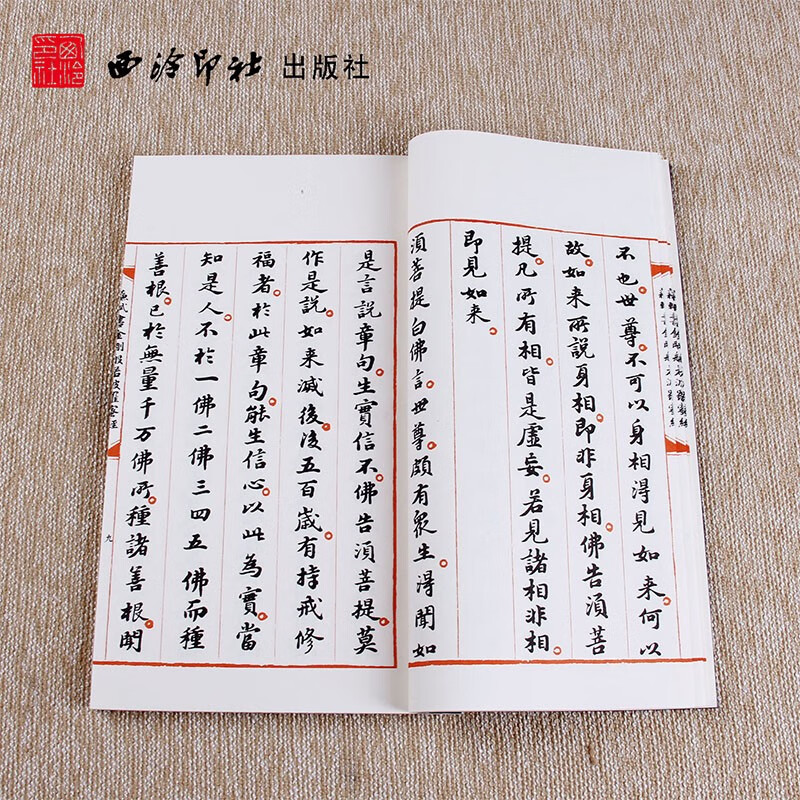 西泠印社
西泠印社 出版社
不也世尊不可以身相得見如来何以
故如来所說身相即非身相佛告須菩
提凡所有相皆是虛妄若見諸相非相
即見如来
須菩提白佛言世尊頗有衆生得聞如
是言說章句生實信不佛告須菩提莫
作是說如来滅後後五百歲有持戒修
福者於此章句能生信心以此為實當
知是人不於一佛二佛三四五佛而種
善根已於無量千万佛所種諸善根聞
書金剛般若波羅蜜經
九